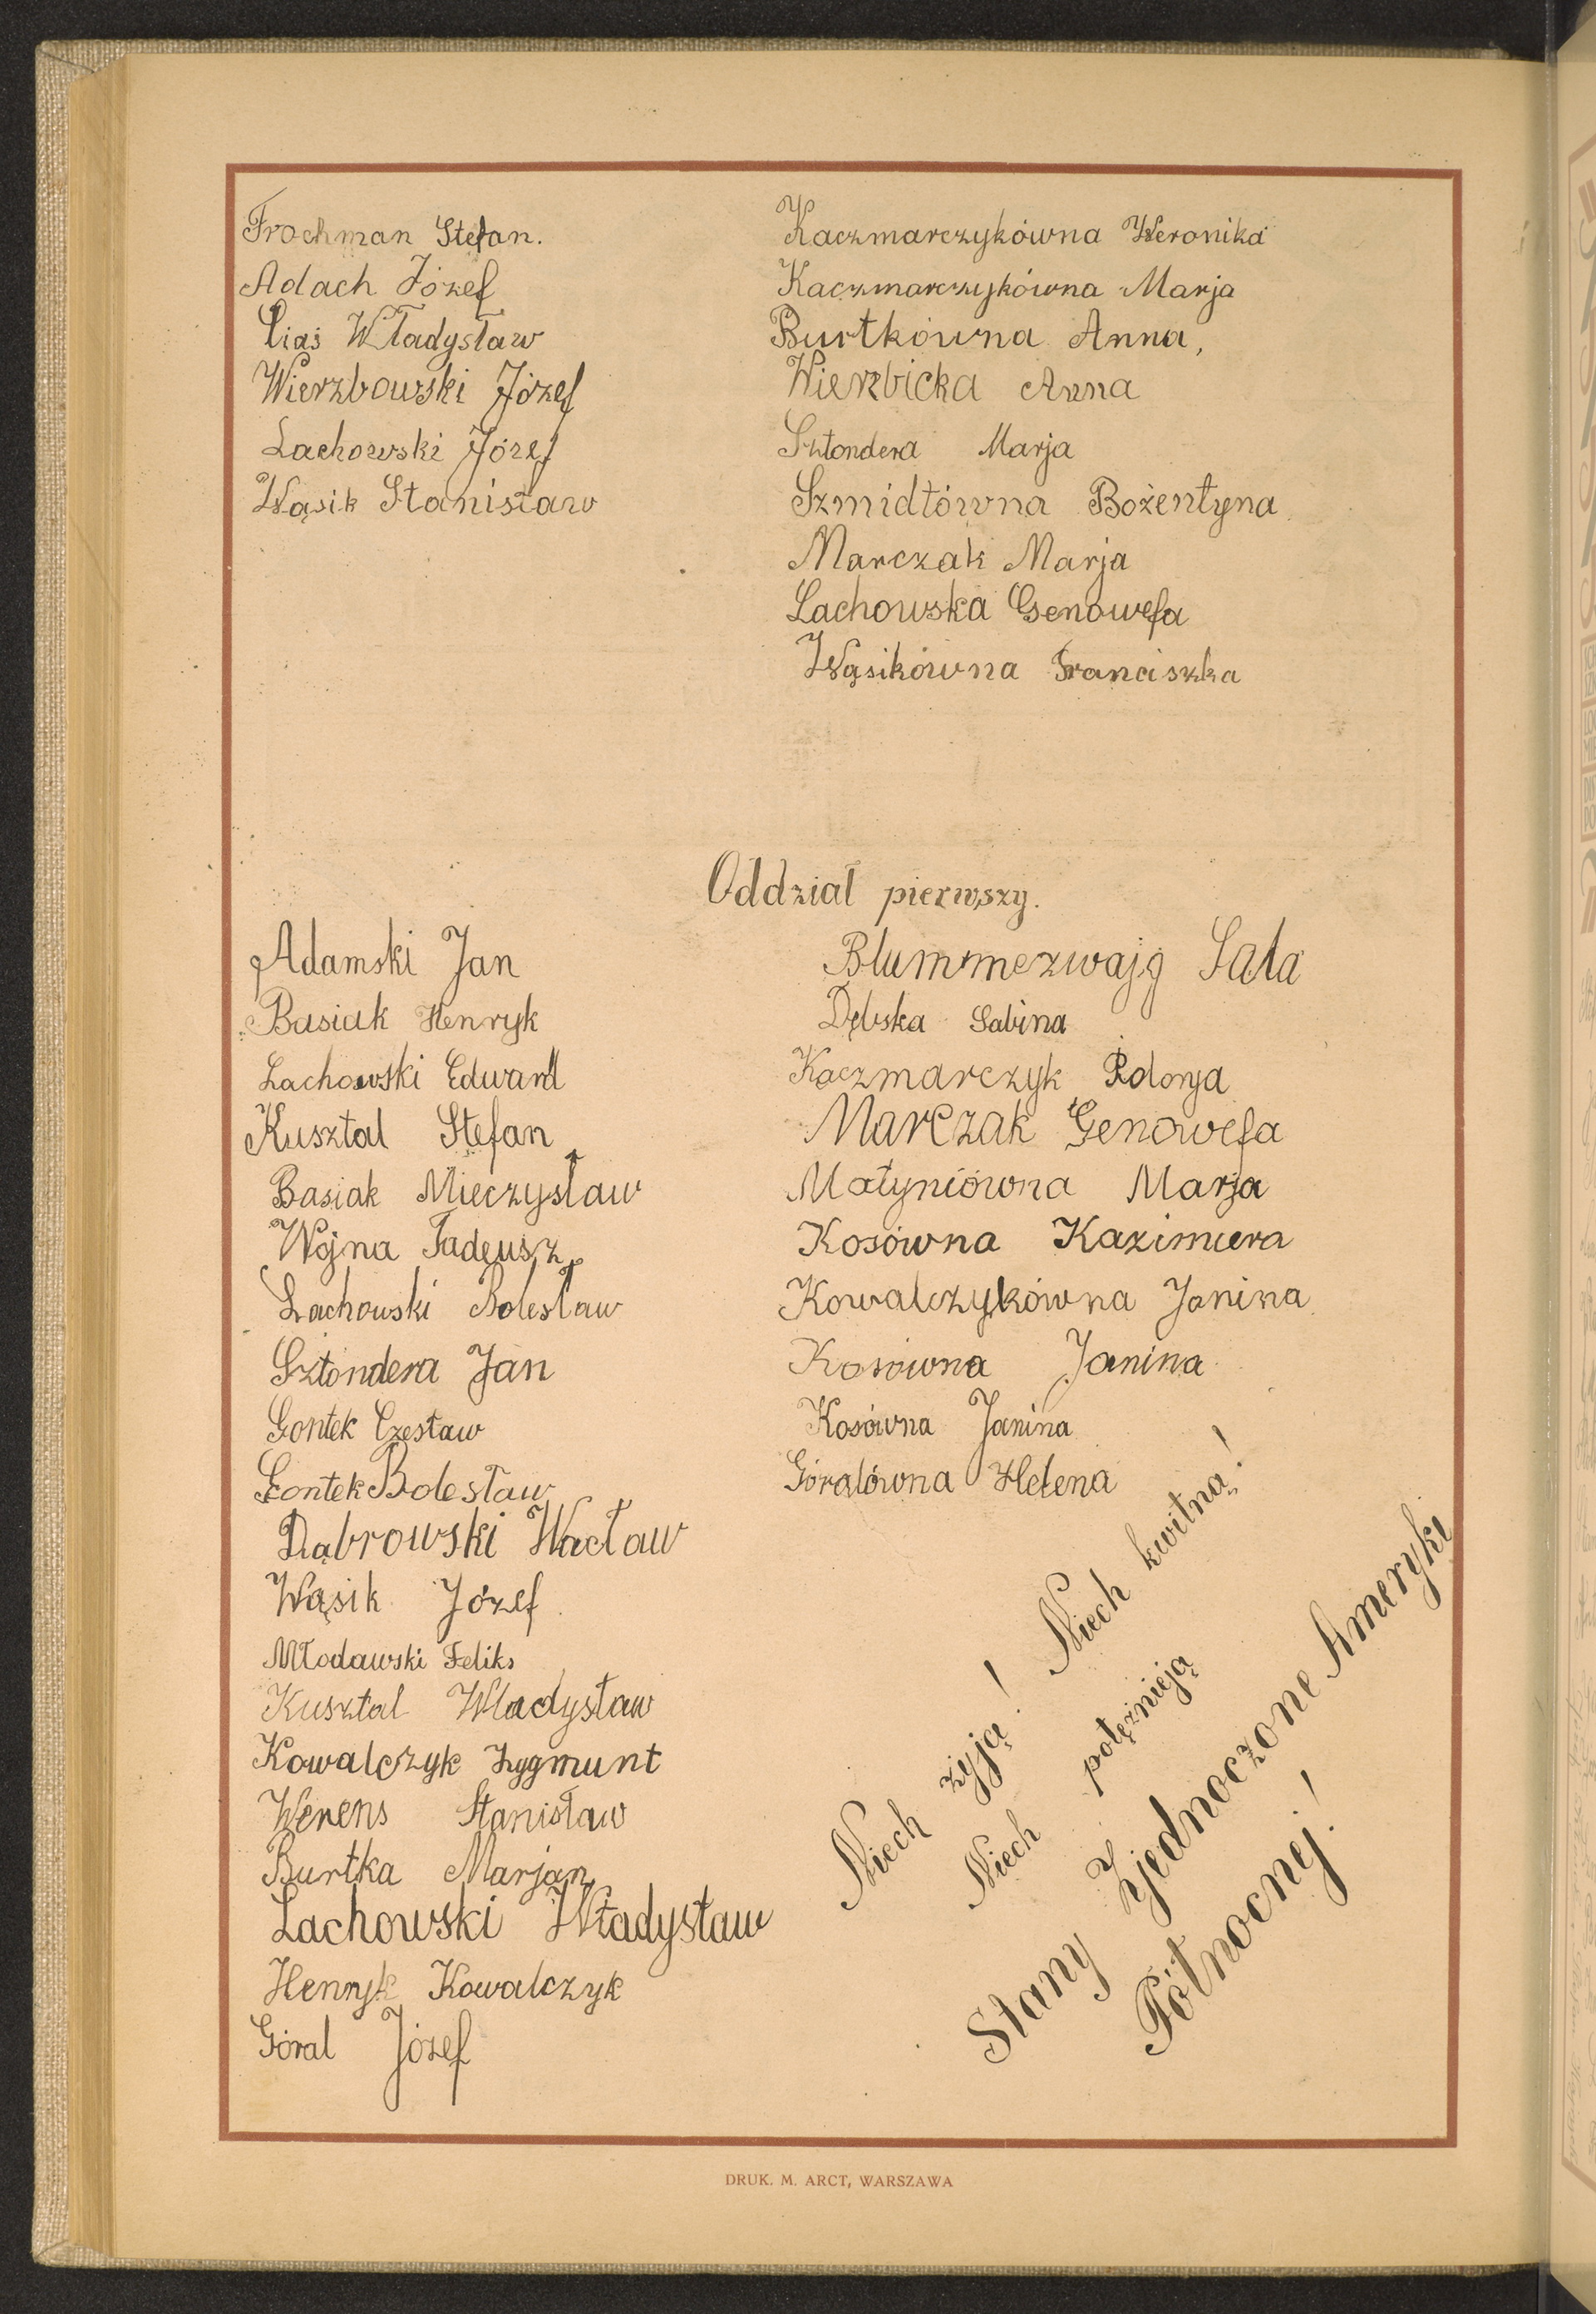 Frochman Stefan.
Adach Józef
Ciaś Władysław
Wierzbowski Józef
Lachowski Józef
Wąsik Stanisław
Kaczmarczykówna Weronika
Kaczmarczykówna Marja
Burtkówna Anna,
Wierzbicka Anna
Sztondera Marja
Szmidtówna Bożentyna
Marczak Marja
Lachowska Genowefa
Wąsikówna Franciszka
Oddział pierwszy.
Adamski Jan
Basiak Henryk
Lachowski Edward
Kusztal Stefan
Basiak Mieczysław
Wojna Tadeusz
Lachowski Bolesław
Sztondera Jan
Gontek Czesław
Gontek Bolesław
Dąbrowski Wacław
Wąsik Józef
Młodawski Feliks
Kusztal Władysław
Kowalczyk Zygmunt
Werens Stanisław
Burtka Marjan
Lachowski Władysław
Henryk Kowalczyk
Góral Józef
Blummezwajg Sala
Dębska Sabina
Kaczmarczyk
Marczak Genowefa
Matyniówna Marja
Kosówna Kazimiera
Kowalczykówna Janina
Kosówna Janina
Kosówna Janina
Góralówna Helena
Niech żyją! Niech kwitną!
Niech potężnieją
Stany Zjednoczone Ameryki
Północnej!
DRUK. M. ARCT, WARSZAWA